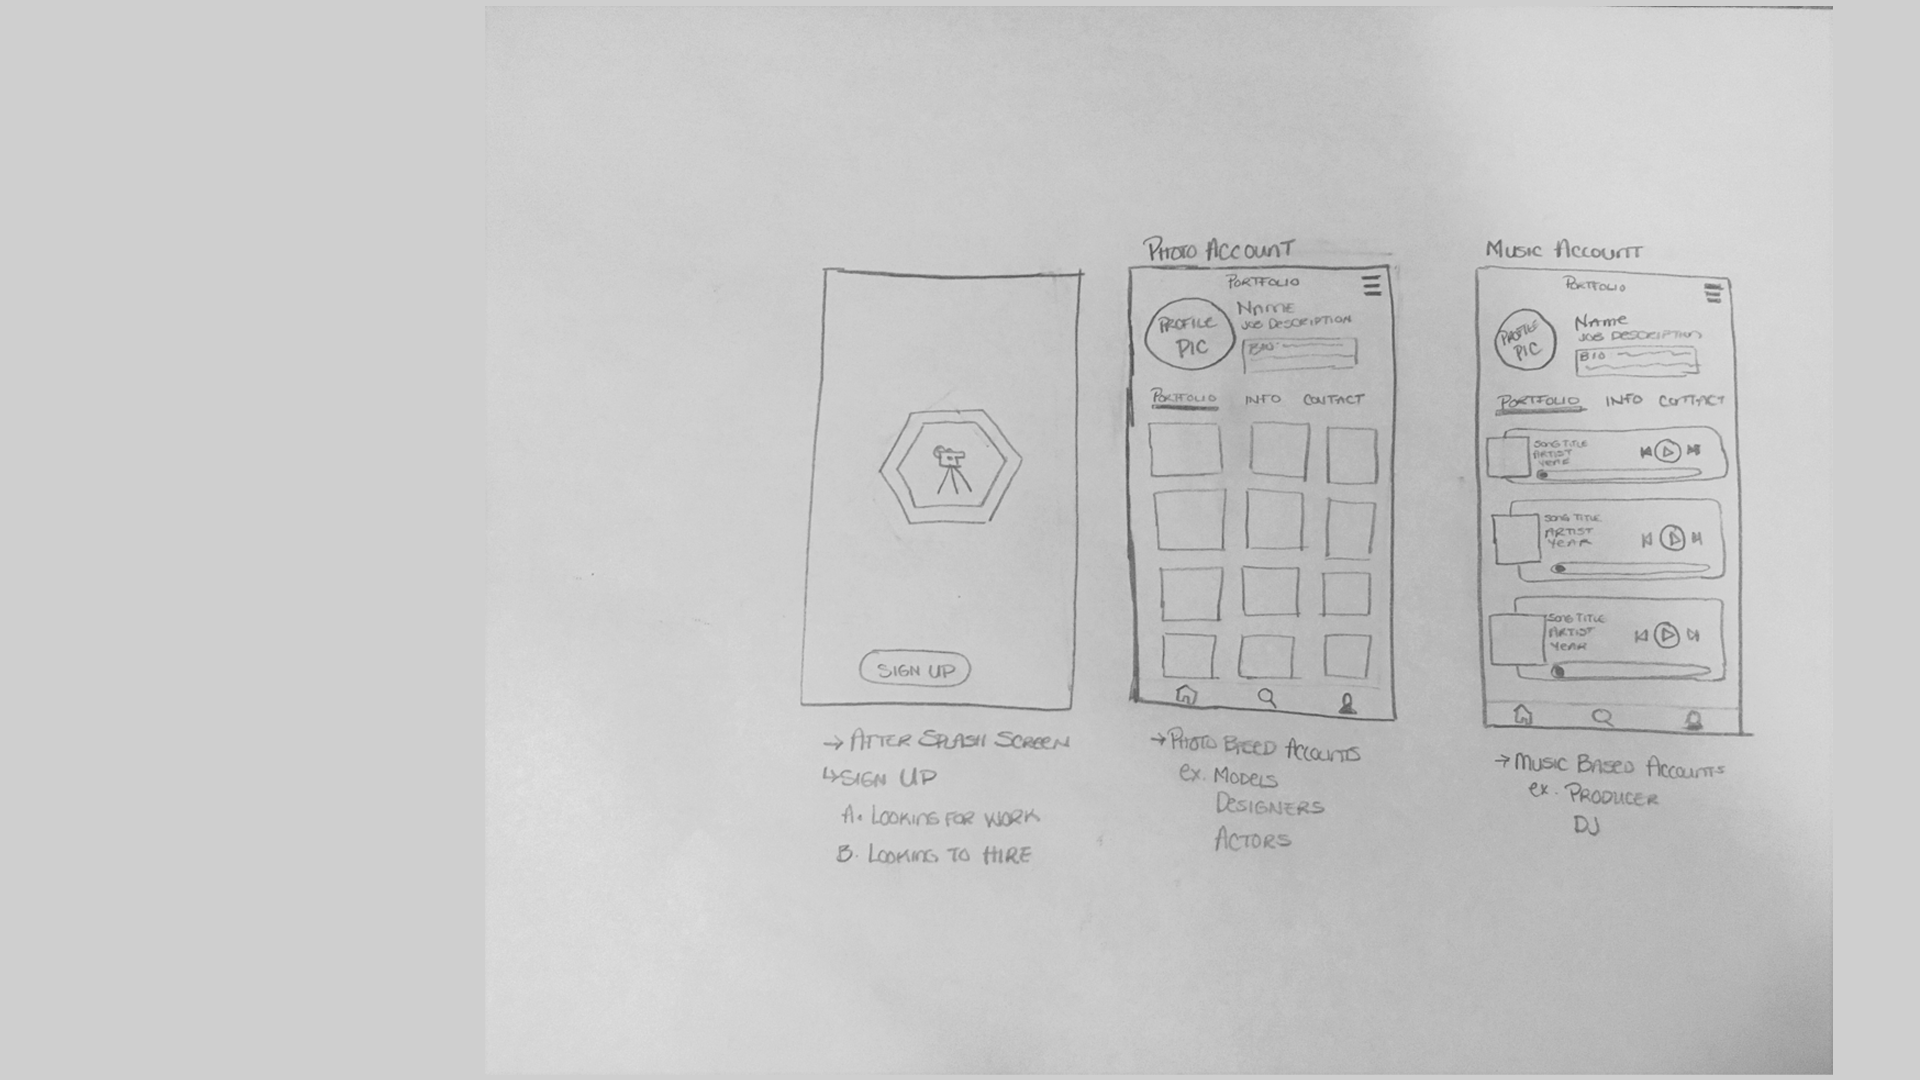 PHOTO ACCOUNT
MUSIC ACCOUNT
SIGN UP
→ AFTER SPLASH SCREEN
↳ SIGN UP
A. LOOKING FOR WORK
B. LOOKING TO HIRE
PORTFOLIO
PROFILE
PIC
NAME
JOB DESCRIPTION
BIO:
PORTFOLIO INFO CONTACT
→ PHOTO BASED ACCOUNTS
ex. MODELS
DESIGNERS
ACTORS
PORTFOLIO
PROFILE
PIC
NAME
JOB DESCRIPTION
BIO
PORTFOLIO INFO CONTACT
SONG TITLE
ARTIST
YEAR
SONG TITLE
ARTIST
YEAR
SONG TITLE
ARTIST
YEAR
→ MUSIC BASED ACCOUNTS
ex. PRODUCER
DJ